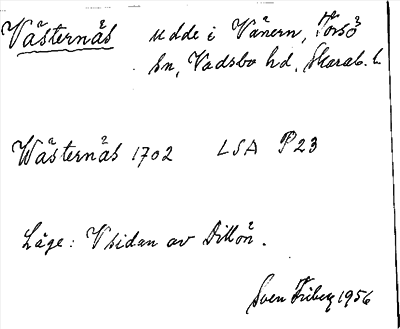 Västernäs udde i Vänern, Torsö
sn, Vadsbo hd, Skarab. l.
Wästernäs 1702 LSA P23
Läge: V sidan av Dillön.
Sven Friberg 1956